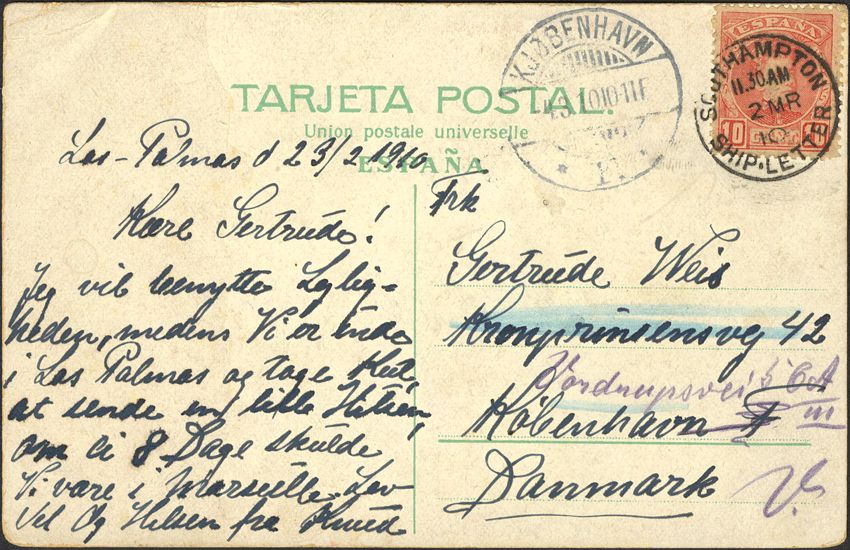 TARJETA POSTAL.
Union postale universelle
ESPAÑA
KJØBENHAVN
4.3.10 10-11F
ESPAÑA
10
SOUTHAMPTON
11.30AM
2 MR
10
SHIP-LETTER
Las-Palmas d 23/2 1910
Kære Gertrude!
Jeg vil benytte Leylig-
heden, medens Vi er inde
i Las Palmas og tage Kul,
at sende en lille Hilsen,
om ci 8 Dage skulde
Vi være i Marseille. Lev
Vel Og Hilsen fra Knud
Frk
Gertrude Weis
Kronprinsensvej 42
København F
Danmark
6A
III
V.